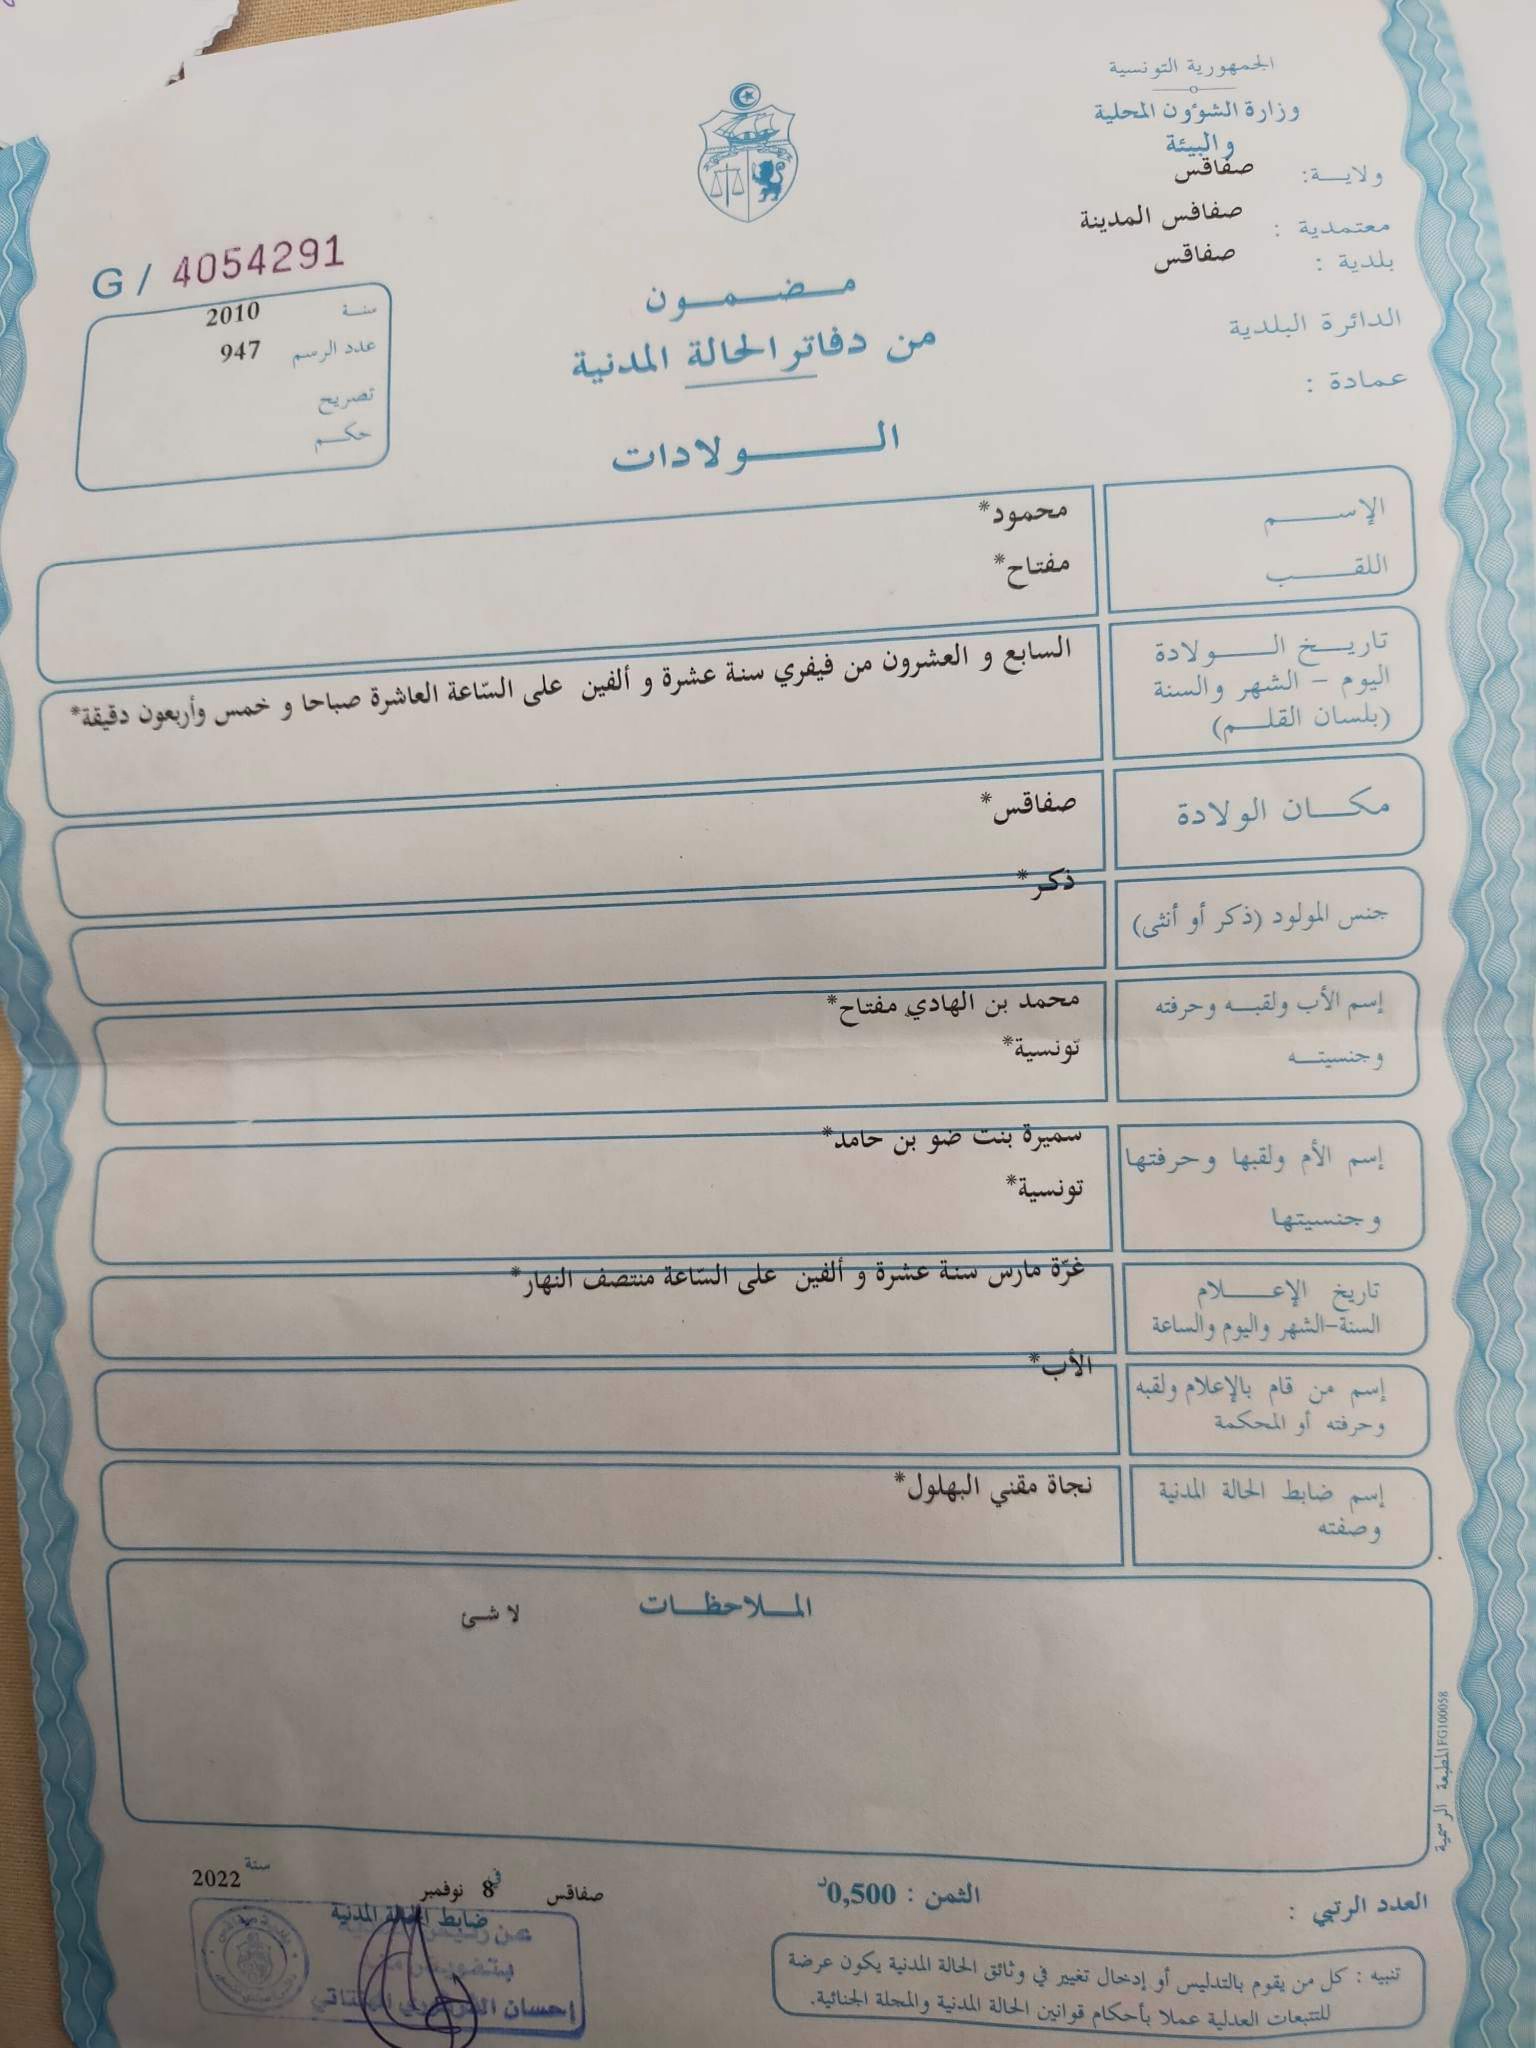 الجمهورية التونسية
وزارة الشؤون المحلية
والبيئة
ولايــة: صفاقس
معتمدية : صفاقس المدينة
بلدية : صفاقس
الدائرة البلدية
عمادة :
G / 4054291
سنة 2010
عدد الرسم 947
تصريح
حكم
مضمون
من دفاتر الحالة المدنية
الولادات
الإسم محمود*
اللقب مفتاح*
تاريخ الولادة
اليوم - الشهر والسنة
(بلسان القلم)
السابع و العشرون من فيفري سنة عشرة و ألفين على السّاعة العاشرة صباحا و خمس وأربعون دقيقة*
مكان الولادة صفاقس*
جنس المولود (ذكر أو أنثى) ذكر*
إسم الأب ولقبه وحرفته محمد بن الهادي مفتاح*
وجنسيته تونسية*
إسم الأم ولقبها وحرفتها سميرة بنت ضو بن حامد*
وجنسيتها تونسية*
تاريخ الإعلام غرّة مارس سنة عشرة و ألفين على السّاعة منتصف النهار*
السنة-الشهر واليوم والساعة
إسم من قام بالإعلام ولقبه الأب*
وحرفته أو المحكمة
إسم ضابط الحالة المدنية نجاة مقني البهلول*
وصفته
الملاحظات لا شئ
المطبعة الرسمية FG100058
العدد الرتبي :
الثمن : 0,500د
صفاقس في 8 نوفمبر سنة 2022
ضابط الحالة المدنية
إحسان
تنبيه : كل من يقوم بالتدليس أو إدخال تغيير في وثائق الحالة المدنية يكون عرضة
للتتبعات العدلية عملا بأحكام قوانين الحالة المدنية والمجلة الجنائية.